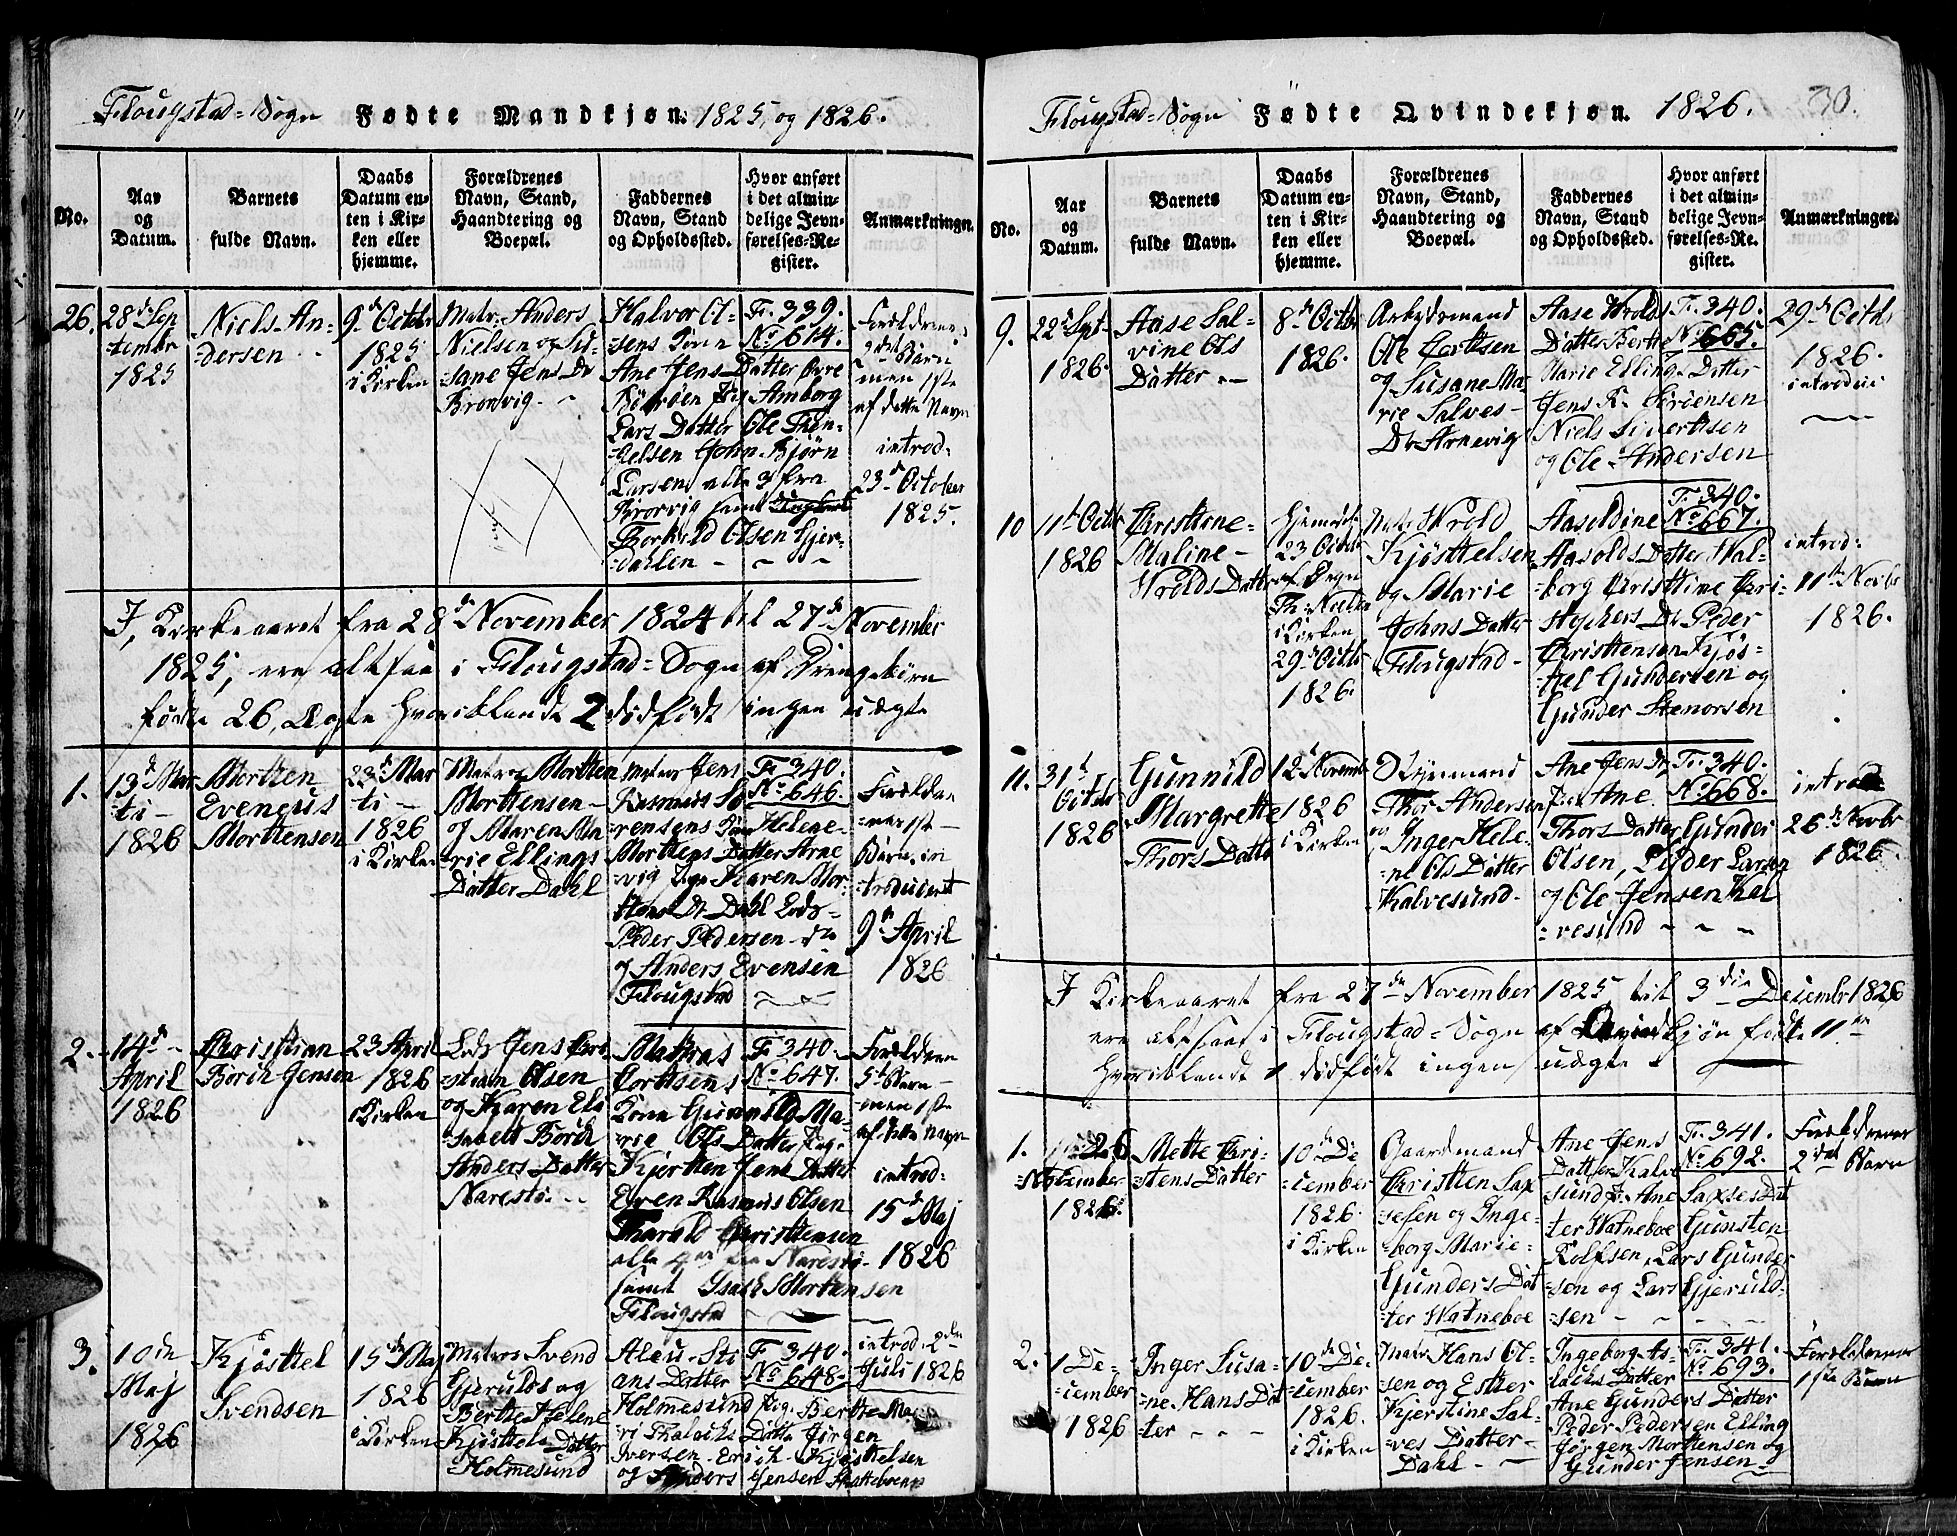 Flougstad=Sogn Fødte Mandkjøn 1825, og 1826.
No.
Aar og Datum.
Barnets fulde Navn.
Daabs Datum enten i Kirken eller hjemme.
Forældrenes Navn, Stand, Haandtering og Boepæl.
Faddernes Navn, Stand og Opholdssted.
Hvor anført i det almindelige Jevnførelses-Register.
Anmærkninger.
26.
28de Sep
tembr
1825
Niels An-
dersen
9de Octbr
1825
i Kirken
Matr: Anders
Nielsen og Su-
sane Jens Dr
Bronvig.
Halvor Ol-
sens Kone
Ane Jens Datter
Lars Datter Ole Then-
gelsen John Bjørn
Larsen, alle 3 fra
Bronvig samt
Thorkild Olsen Gjer-
dahlen
F. 339.
No 614.
Forældrenes
2det Barn
men 1ste
af dette Navn
introd:
23de October
1825.
I, Kirkeaaret fra 28de November 1824 til 27de November
1825, ere altsaa i Flougstad=Sogn af Drengebørn
fødte 26, Ægte hvoriblandt 2 dødfødt ingen uægte
1.
13de Mar
ti
1826
Morthen
Evenius
Morthensen
23de Mar
ti
1826
i Kirken
Matros Morthen
Morthensen
og Maren Ma
rie Ellings
Datter Dahl
Matros Jens
Rasmus Sø
rensens Kone Helene
Morthens Datter Arne
vig Pige Karen Mor-
thens Dr Dahl Lods
Peder Pedersen
og Anders Evensen
Flougstad
F. 340.
No 646.
Forældre
nes 1ste
Barn, in
troduceret
9de April
1826
2.
14de
April
1826
Christian
Borck Jensen
23 April
1826
i Kirken
Lods Jens Chri
stian Olsen
og Karen Eli
sabeth Borck
Anders Datter
Narestø.
Mathias
Corthsens
Kone Gunnild Ma-
rie Ols Datter Pige
Kjersten Jens Datter
Even Rasmus Olsen
Tharald Christensen
alle fra Narestø
samt Isach Morthensen
Flougstad
F. 340.
No 647.
Forældrenes
5te Barn
men 1ste
af dette Navn
introd:
15de Maj
1826
3.
10de
Maj
1826
Kjøsthel
Svendsen
15de Maj
1826
i Kirken
Matros Svend
Gjerulds og
Berthe Helene
Kjøsthels Datter
Holmesund
Aleu Sti
ans Datter
Holmesund Pig. Berthe Ma
Datter Jørgen
Iversen Erich Kjøsthelsen
og Anders Jensen
F. 340.
No 648.
introd. 2den
Juli 1826
Flougstad=Sogn Fødte Qvindekjøn. 1826. 30.
No.
Aar og Datum.
Barnets fulde Navn.
Daabs Datum enten i Kirken eller hjemme.
Forældrenes Navn, Stand, Haandtering og Boepæl.
Faddernes Navn, Stand og Opholdssted.
Hvor anført i det almindelige Jevnførelses-Register.
Anmærkninger.
9.
22de Sept.
1826.
Aase Sal-
vine Ols
Datter
8de Octbr
1826.
Arbeidsmand
Ole Corthsen
og Susane Ma-
rie Salves
Dr Arnevig
Aase Wrolds
Datter Berthe
Marie Ellings Datter
Jens R. Sørensen
Niels Sivertsen
og Ole Andersen
F. 340.
No 665.
29de Octbr
1826.
introduc:
10
11te Octbr
1826
Christine
Maline
Wrolds Datter
Hjemmedøbt
23 Octbr
i Kirken
29de Octbr
1826.
Matr Wrold
Kjøsthelsen
og Marie
Johns Datter
Flougstad
Aasoldine
Aasolds Datter Wal-
borg Christine Chri-
stophers Dr Peder
Christensen Kjøs-
thel Gundersen og
Gunder Stenorsen
F. 340.
No 667.
introd:
11te Novbr
1826.
11.
31te
Octbr
1826
Gunnild
Margrethe
Thors Datter
12de Novemb
1826
i Kirken
Thor Andersen
og Inger Hele-
ne Ols Datter
Kalvesund
Ane Jens Dr
Pige Ane
Thors Datter Gunder
Olsen, Peder Larsen
og Ole Jensen Kal
vesund
F. 340.
No 668.
introd
26de Novbr
1826.
I Kirkeaaret fra 27de November 1825 til 3die Decembr 1826
ere altsaa i Flougstad=Sogn af Qvindkjøn fødte 11
hvoriblandt 1 dødfødt ingen uægte
1.
26
November
1826.
Mette Chri-
stens Datter
10de De
cember
1826.
i Kirken
Gaardmand
Christen Sax
sesen og Inge-
borg Marie
Gunders Dat
ter Watneboe
Ane Jens
Datter Kalve
sund P. Ane Saxses Dat
ter Watneboe Gunsten
Rolfsen, Lars Gunder
sen og Lars Gjeruld-
sen
F. 341.
No 692.
Forældrenes
2det Barn
2.
1 De-
cember
1826
Inger Susa-
ne Hans Dat
ter
10de De-
cember
1826.
i Kirken
Matr. Hans Ol-
sen og Esther
Kjerstine Sal-
ves Datter
Dahl
Ingeborg As-
lacks Datter
Ane Gunders Datter
Peder Pedersen Elling
Jørgen Morthensen og
Gunder Jensen
F. 341.
No 693.
Forældrenes
1ste Barn